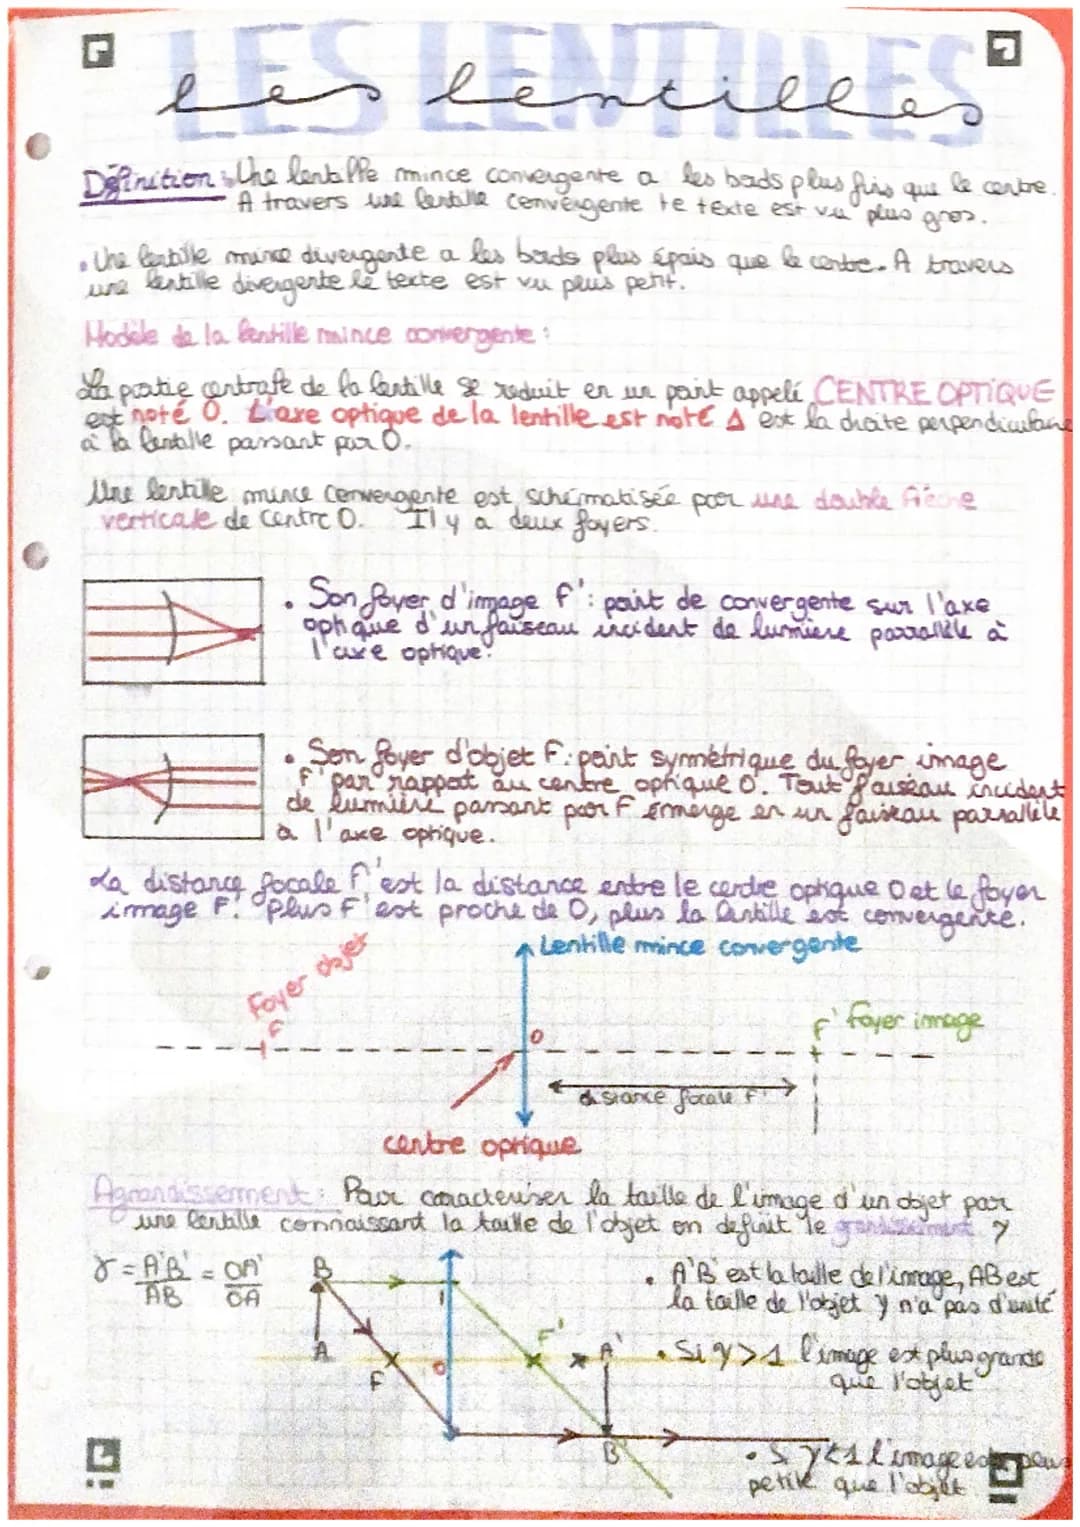 LES LENTILLES
les lentilles
Définition : Une lentille mince convergente a les bords plus fins que le centre.
A travers une lentille convergente le texte est vu plus gros.
• Une lentille mince divergente a les bords plus épais que le centre. A travers
une lentille divergente le texte est vu plus petit.
Modèle de la lentille mince convergente :
La partie centrale de la lentille se reduit en un point appelé CENTRE OPTIQUE
est noté O. L'axe optique de la lentille est noté Δ est la droite perpendiculaire
à la lentille passant par O.
Une lentille mince convergente est schématisée par une double flèche
verticale de centre O. Il y a deux foyers.
• Son foyer d'image F' : point de convergente sur l'axe
optique d'un faisceau incident de lumière parrallèle à
l'axe optique.
• Son foyer d'objet F : point symmètrique du foyer image
F' par rapport au centre optique O. Tout faisceau incident
de lumière passant par F émerge en un faisceau parrallèle
à l'axe optique.
La distance focale F' est la distance entre le centre optique O et le foyer
image F'. Plus F' est proche de O, plus la lentille est convergente.
Lentille mince convergente
Foyer objet
F
O
F' foyer image
distance focale F'
centre optique
Agrandissement : Pour caracteriser la taille de l'image d'un objet par
une lentille connaissant la taille de l'objet on definit le grandissement γ
γ = A'B' = OA'
AB OA
B
A
F
O
F'
A'
B'
• A'B' est la taille de l'image, AB est
la taille de l'objet γ n'a pas d'unité
• Si γ > 1 l'image est plus grande
que l'objet
• Si γ < 1 l'image est plus
petite que l'objet